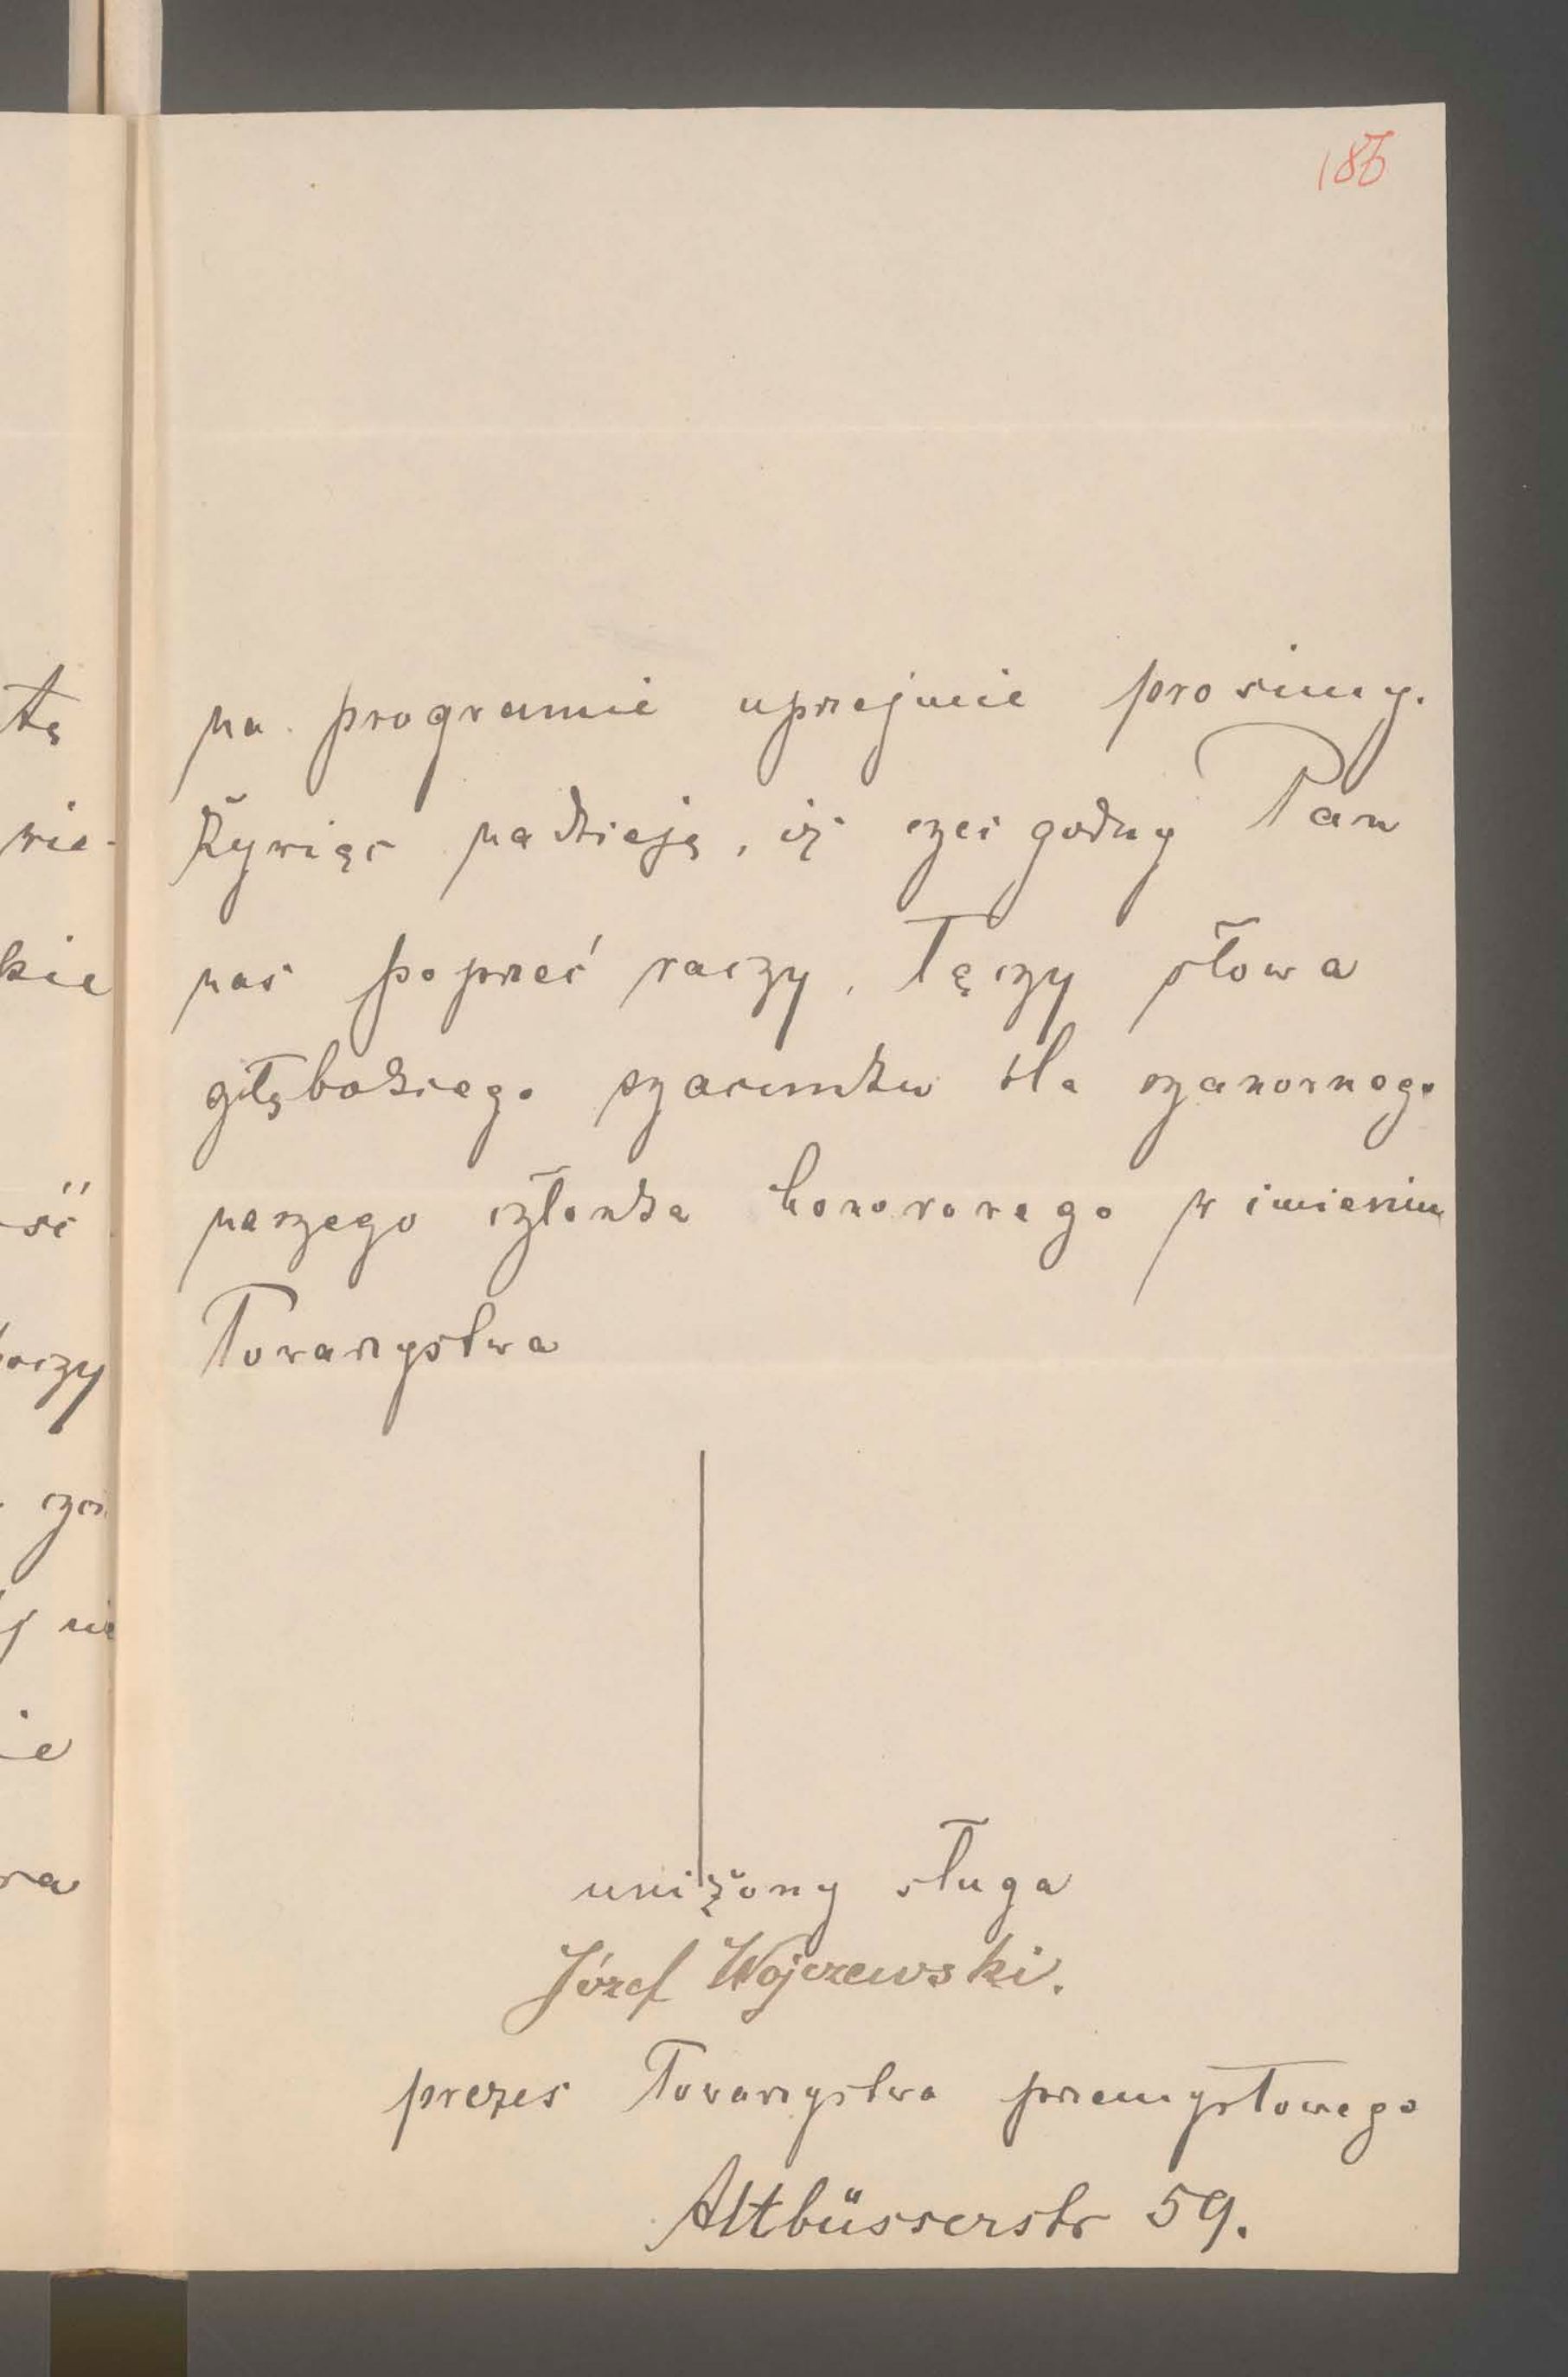 186
na programie uprzejmie prosimy.
Żywiąc nadzieję, iż czcigodny Pan
nas poprzeć raczy, łączy słowa
głębokiego szacunku dla szanownego
naszego członka honorowego w imieniu
Towarzystwa
uniżony sługa
Józef Wojczewski.
prezes Towarzystwa przemysłowego
Altbüsserstr 59.